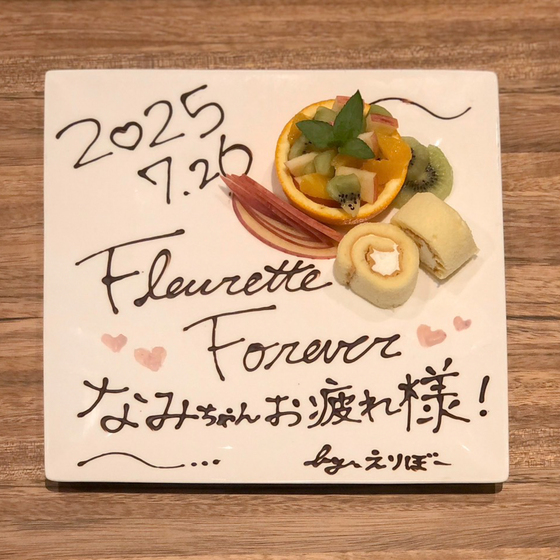 2025
7.26
Fleurette
Forever
なみちゃんお疲れ様！
by.えりぼー